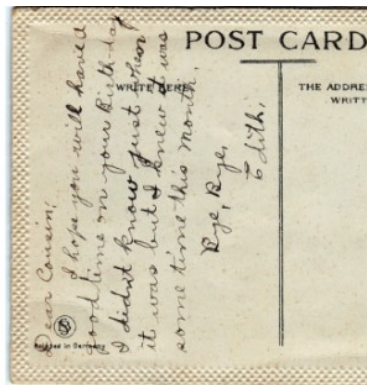 POST CARD
WRITE HERE
THE ADDRE
WRITT
Dear Cousin:
I hope you will have a
good time on your Birth-day
I didn't know just when
it was but I knew it was
some time this month.
Bye, Bye,
Edith,
Printed in Germany